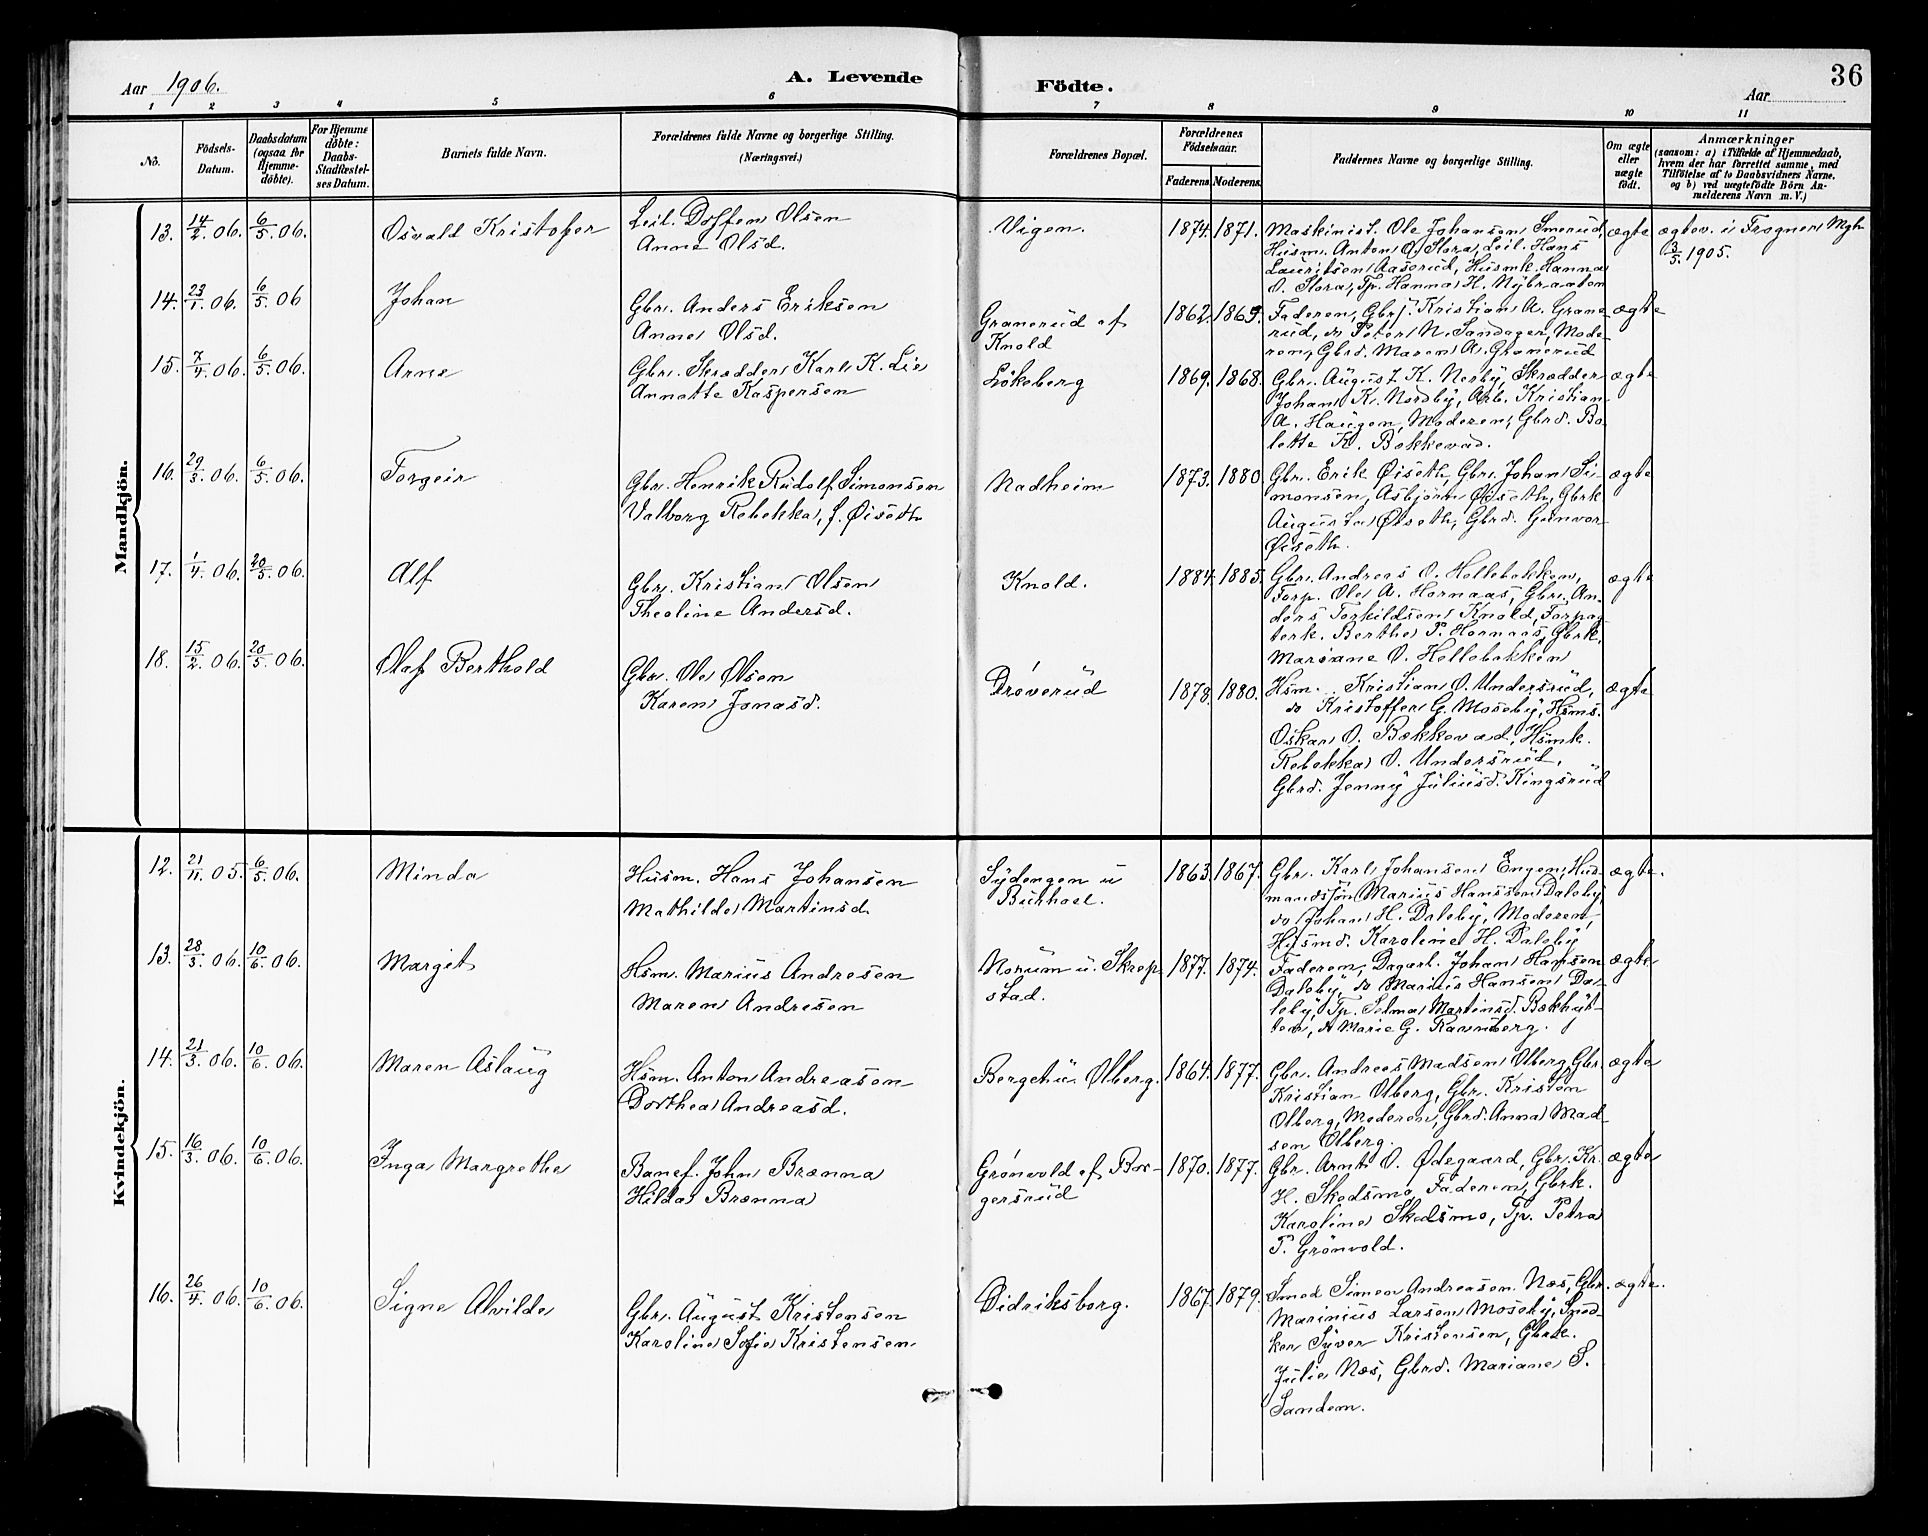 36
Aar 1906.
A. Levende
Födte.
Aar
1 2 3 4 5 6 7 8 9 10 11
No.
Födsels-
Datum.
Daabsdatum
(ogsaa for
Hjemme-
döbte).
For Hjemme
döbte:
Daabs-
Stadfæstel-
ses Datum.
Barnets fulde Navn.
Forældrenes fulde Navne og borgerlige Stilling.
(Næringsvei.)
Forældrenes Bopæl.
Forældrenes
Födselsaar.
Faderens. Moderens.
Faddernes Navne og borgerlige Stilling.
Om ægte
eller
uægte
födt.
Anmærkninger
(saasom: a) i Tilfælde af Hjemmedaab,
hvem der har forrettet samme, med
Tilföielse af to Daabsvidners Navne.
og b) ved uægtefödte Börn An-
melderens Navn m. V.)
Mandkjön.
13. 14/2 06. 6/5 06. Osvald Kristofer
Leil. Olsen
Anne Olsd.
Vigen.
1874. 1871.
Maskinist. Ole Johansen Smerud,
Husm. Anton O. Stora, Leil. Hans
Lauritsen Aaserud, Husmk. Hanna
O. Stora, Tp. Hanna H. Nybraaten
ægte
ægtev. i Frogner Mgh
3/5. 1905.
14. 23/1 06. 6/5 06 Johan
Gbr. Anders Eriksen
Anne Olsd.
Granerud af
Knold
1862. 1865.
Faderen, Gbrs. Kristian A. Grane-
rud, do Peter N. Sandager, Mode-
ren, Gbrd. Maren A. Granerud
ægte
15. 7/4 06. 6/5 06. Arne
Gbr. Skrædder Karl K. Lie
Annette Kaspersen
Lökeberg
1869. 1868.
Gbr. August K. Nesby, Skrædder
Johan K. Nordby, Arb. Kristian
A. Haugen, Moderen, Gbrd. Bo-
lette K. Bekkevad.
ægte
16. 29/3 06. 6/5 06. Torgeir
Gbr. Henrik Rudolf Simonsen
Valborg Rebekka, f. Øiseth
Nadheim
1873. 1880.
Gbr. Erik Øiseth, Gbr. Johan Si-
monsen, Asbjørn Øiseth, Gbrk
Augusta Øiseth, Gbrd. Gunvor
Øiseth.
ægte
17. 1/4 06. 20/5 06. Alf
Gbr. Kristian Olsen
Theoline Andersd.
Knold.
1884. 1885.
Gbr. Andreas O. Hellebekken,
Torp. Ole A. Hornaas, Gbr. An-
ders Torkildsen Knold, Torpa-
terk. Berthe P. Hornaas, Gbrk.
Mariane O. Hellebekken
ægte
18. 15/2 06. 20/5 06. Olaf Berthold
Gbr. Ole Olsen
Karen Jonasd.
Prøverud
1878. 1880.
Hsm. Kristian O. Undersrud,
do Kristoffer G. Moseby, Hsms.
Oskar O. Bækkevad, Hsmk.
Rebekka O. Undersrud,
Gbrd. Jenny Juliusd. Kingsrud
ægte
Kvindekjön.
12. 21/11 05. 6/5 06. Minda
Husm. Hans Johansen
Mathilde Martinsd.
Sydengen u
Burhoel.
1863. 1867.
Gbr. Karl Johansen Engen, Hus-
mandssøn Marius Hanssen Daleby,
do Johan H. Daleby, Moderen,
Husmd. Karoline H. Daleby
ægte.
13. 28/3 06. 10/6 06. Margit
Hsm. Marius Andresen
Maren Andresen
Norum u. Skrep-
stad.
1877. 1874.
Faderen, Dagarb. Johan Hansen
Daleby, do Marius Hansen Da-
leby, Tp. Selma Martinsd. Bækhüt-
ten, do Marie G. Ravnsberg.
ægte
14. 21/3 06. 10/6 06. Maren Aslaug
Hsm. Anton Andreasen
Dorthea Andreasd.
Berget u. Ølberg.
1864. 1877.
Gbr. Andreas Madsen Olberg, Gbr.
Kristian Olberg, Gbr. Kristen
Olberg, Moderen, Gbrd. Anna Mad-
sen Olberg.
ægte
15. 16/3 06. 10/6 06. Inga Margrethe
Banef. John Brænna
Hilda Brænna
Grönvold af Bor-
gersrud
1870. 1877.
Gbr. Arnt O. Ødegaard, Gbr. Kr.
H. Skedsmo, Faderen, Gbrk.
Karoline Skedsmo, Tp. Petra
P. Grönvold.
ægte
16. 26/4 06. 10/6 06. Signe Alvilde
Gbr. August Kristensen
Karoline Sofie Kristensen.
Didriksborg.
1867. 1879.
Smed Simen Andreasen Næs, Gbr.
Marinius Larsen Moseby, Sned-
ker Syver Kristensen, Gbrk.
Julie Næs, Gbrd. Mariane S.
Sandem.
ægte.